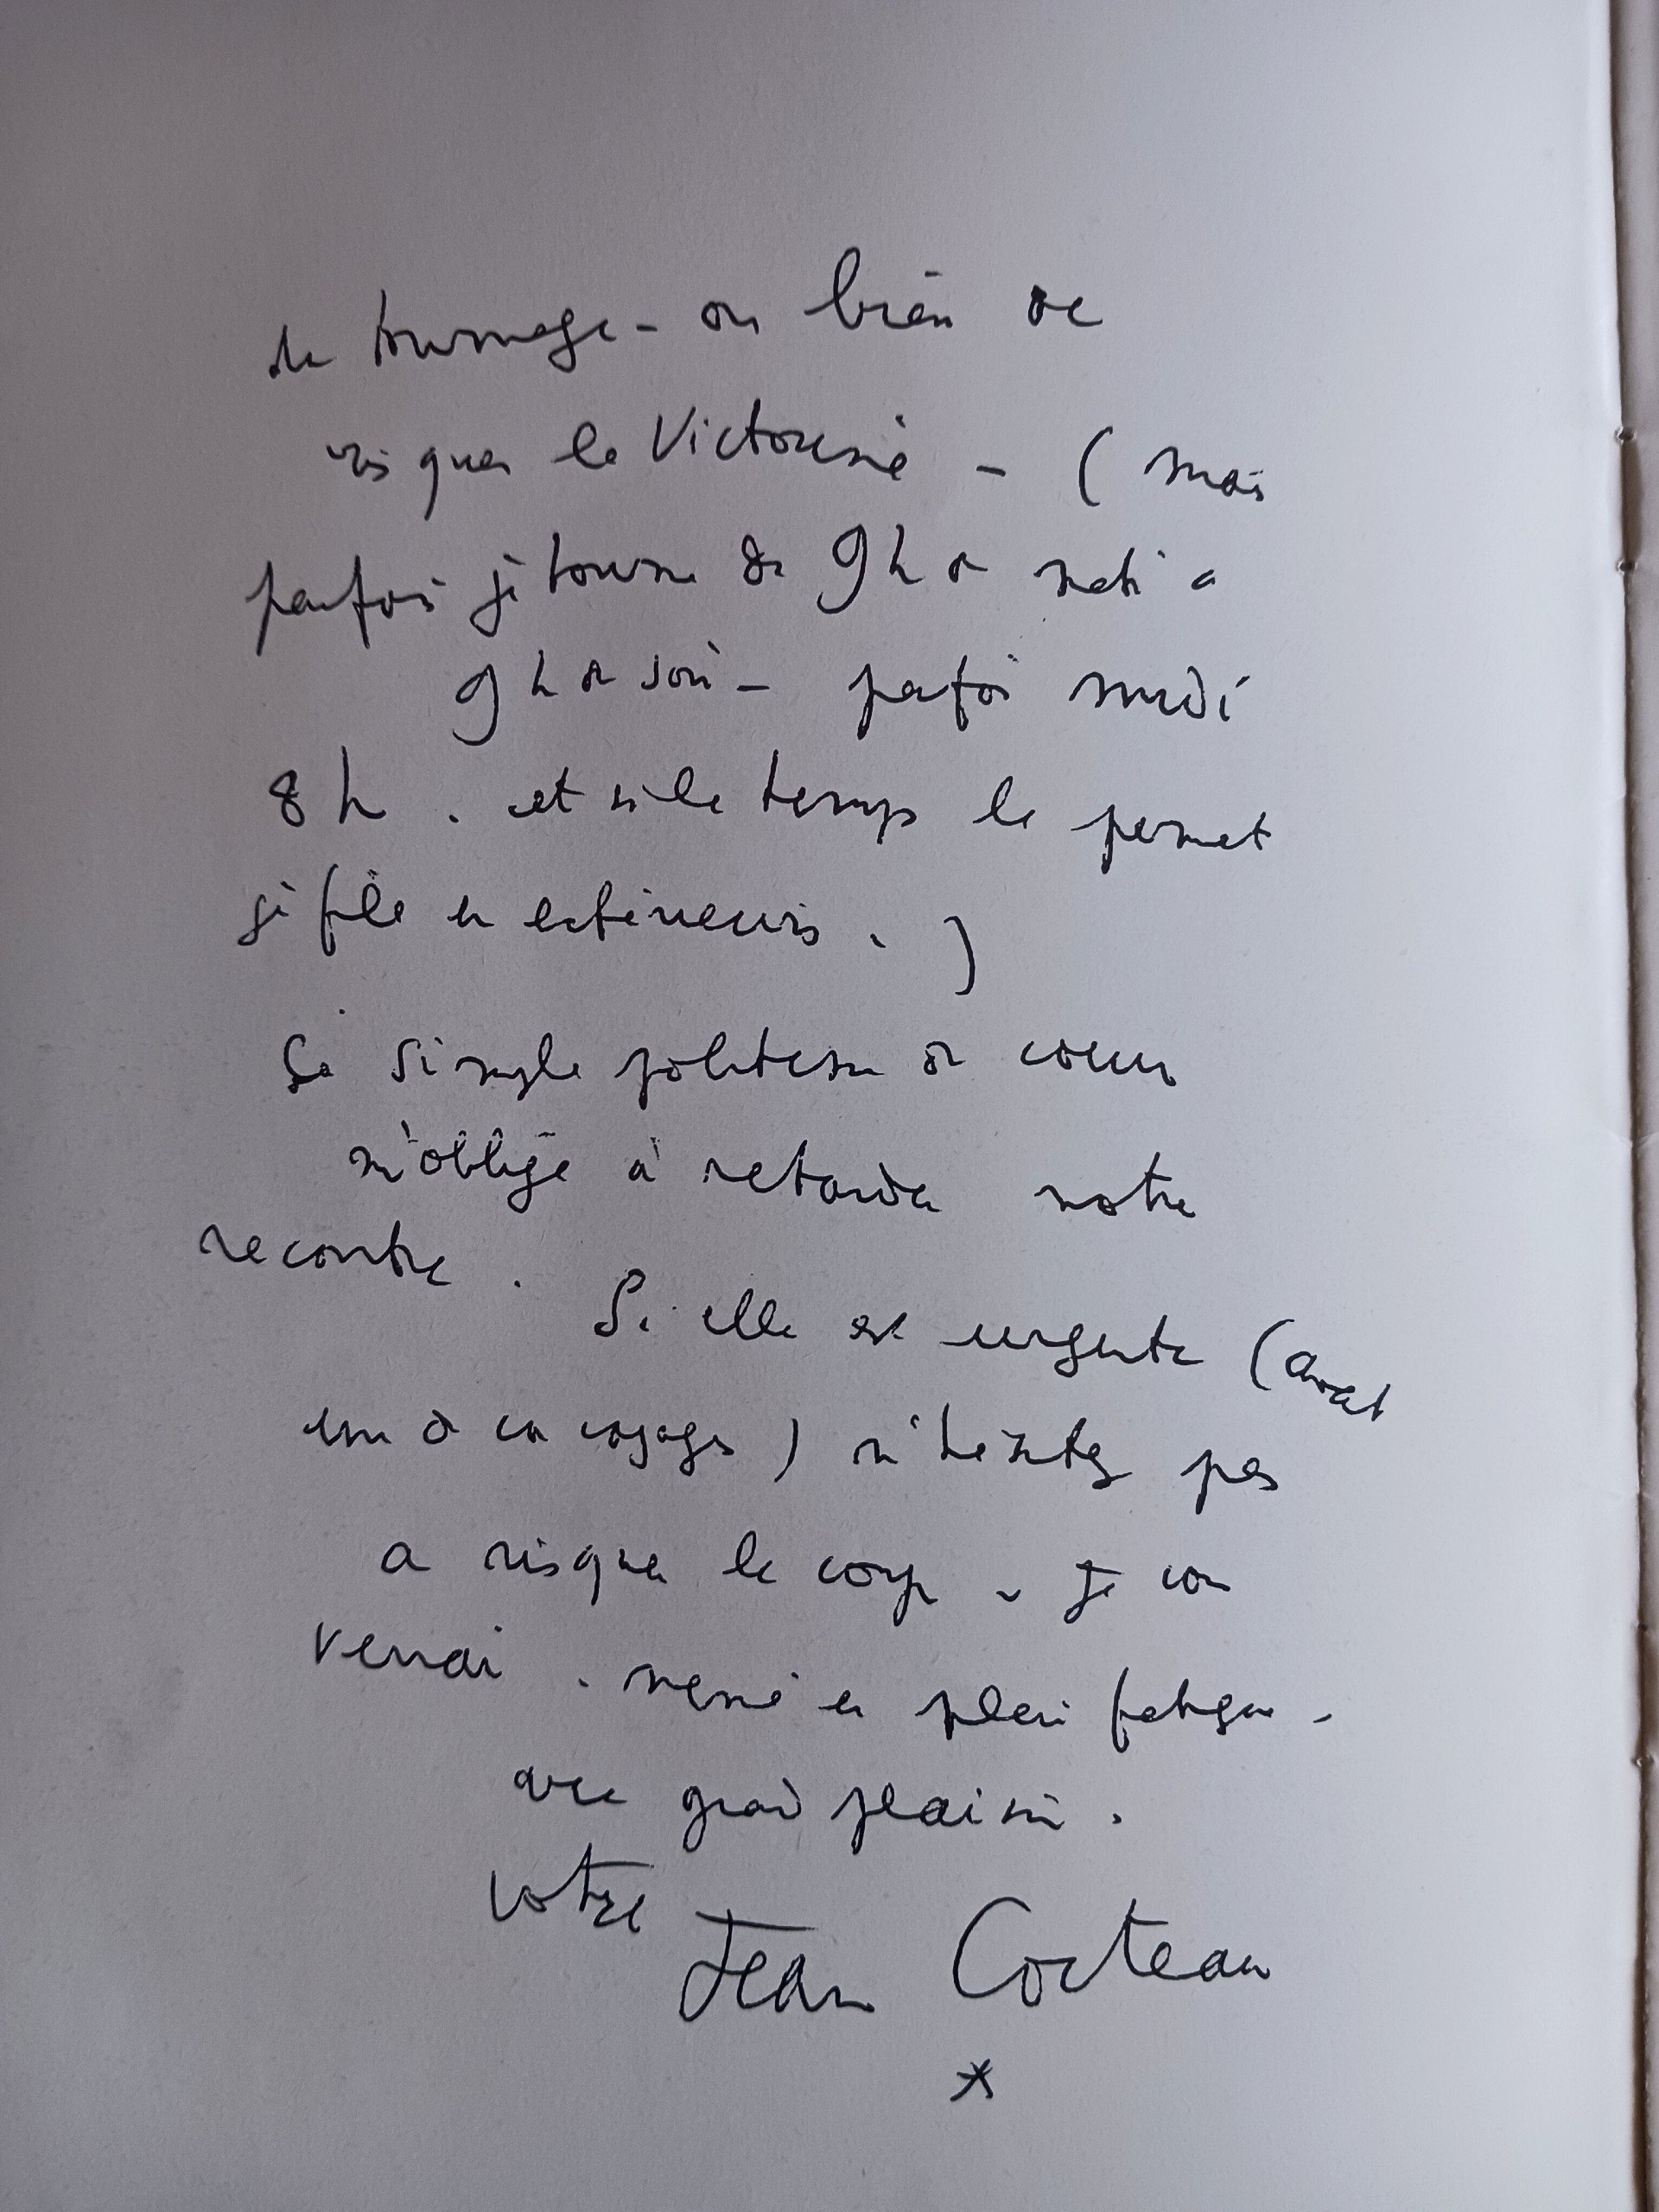 de tournage – ou bien de
risquer la Victorine – (mais
parfois je tourne de 9 h du matin à
9 h du soir – parfois midi
8 h. et si le temps le permet
je file en extérieurs.)
La simple politesse du cœur
m'oblige à retarder notre
rencontre. Si elle est urgente (avant
un de vos voyages) n'hésitez pas
à risquer le coup – Je vous
verrai. même en pleine fatigue –
avec grand plaisir.
votre Jean Cocteau
*